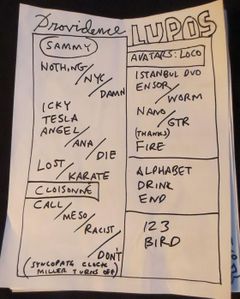 Providence
LUPOS
SAMMY
NOTHING/
NYC/
DAMN
ICKY
TESLA
ANGEL/
ANA/
DIE
LOST/
KARATE
CLOISONNE
CALL/
MESO/
RACIST/
DON'T
(SYNCOPATE CLOCK
MILLER TURNS OFF)
AVATARS: LOCO
ISTANBUL DVO
ENSOR/
WORM
NANO/
GTR
(THANKS)
FIRE
ALPHABET
DRINK
END
123
BIRD